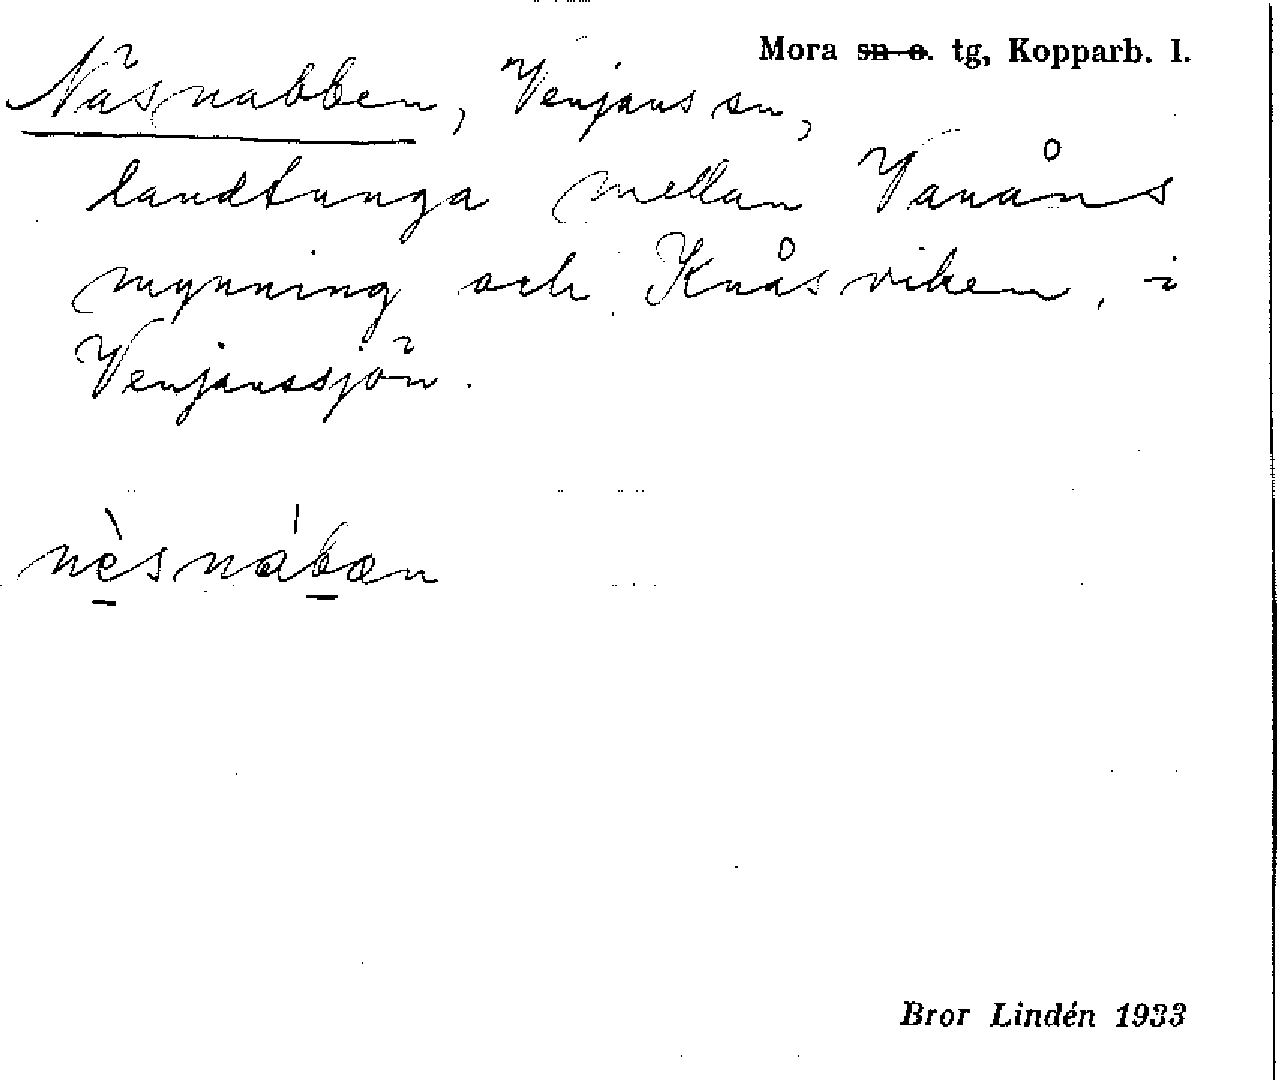 Mora sn o. tg, Kopparb. l.
Näsnabben, Venjans sn,
landtunga mellan Vanåns
mynning och Knåsviken, i
Venjanssjön.
nèsnábæn
Bror Lindén 1933